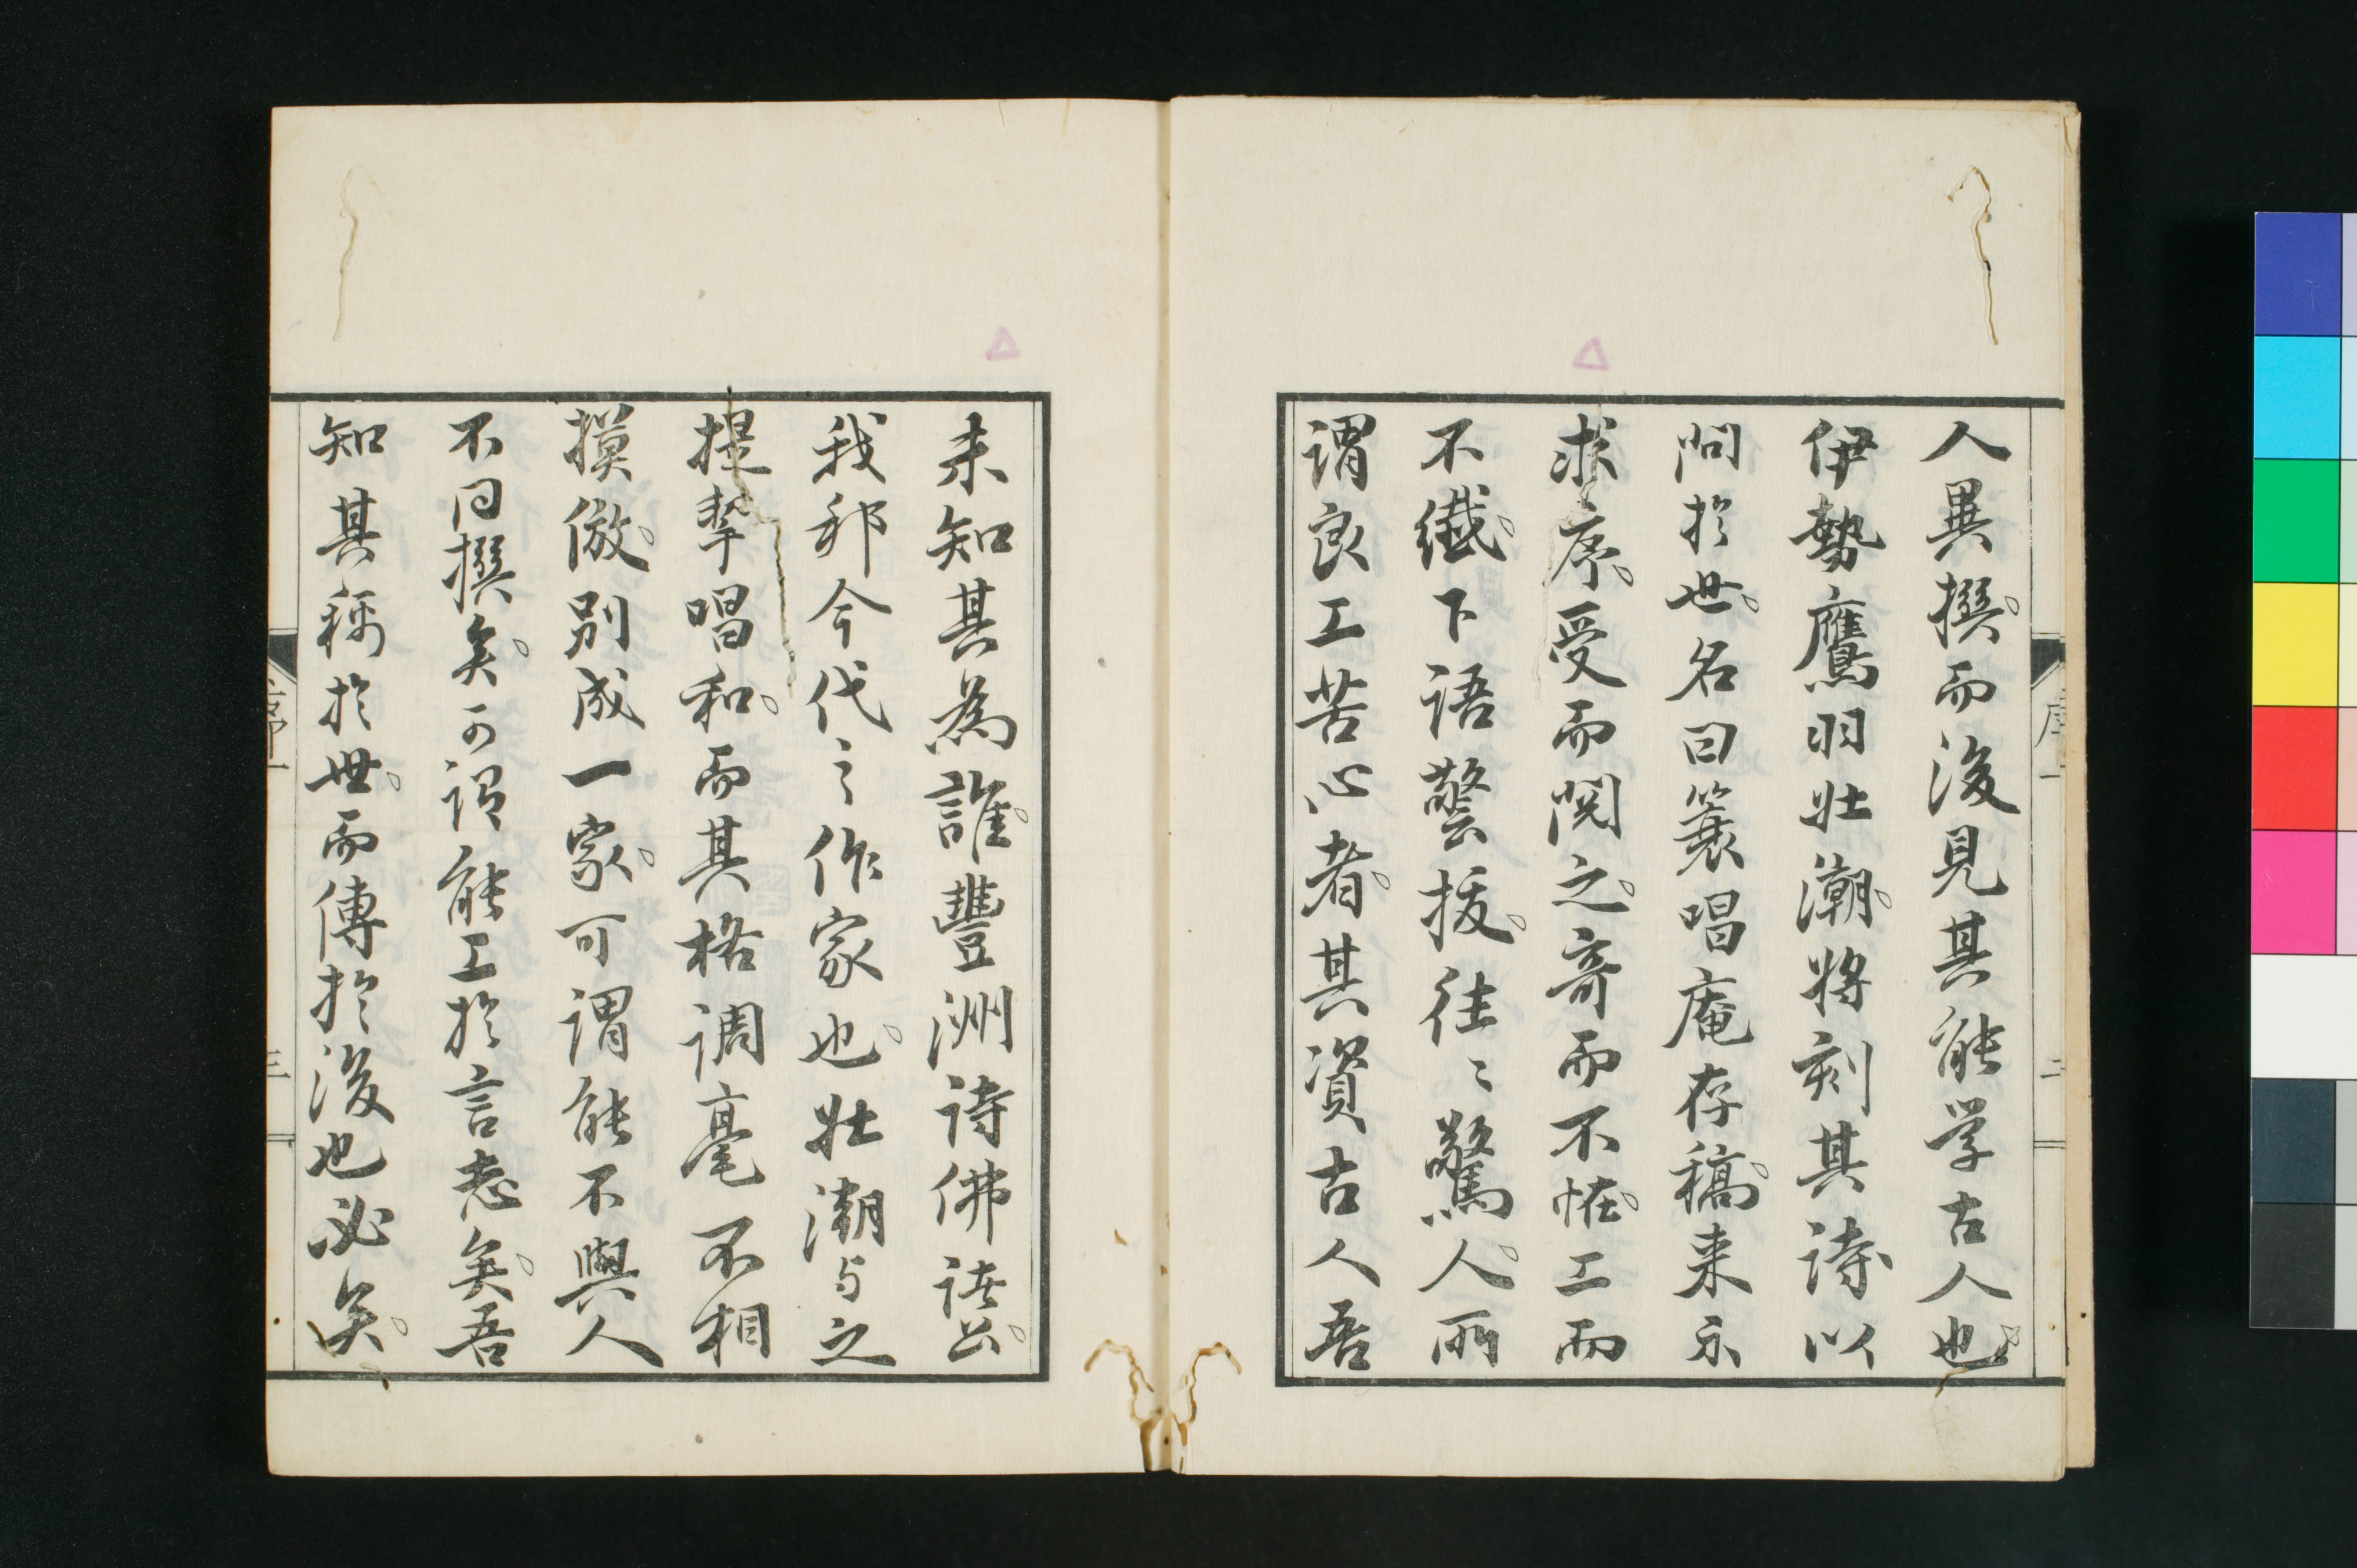 人異撰。而後見其能学古人也。
伊勢鷹羽壮潮。将刻其詩以
問於世。名曰簑唱庵存稿。来示
求序。受而閲之。奇而不怪。工而
不纎。下語警抜。往〻驚人。所
謂良工苦心者。其資古人吾
序一
二
未知其為誰。豊洲詩佛諸公。
我邦今代之作家也。壮潮与之
提挈唱和。而其格調毫不相
摸倣。別成一家。可謂能不與人
不同撰矣。可謂能工於言志矣。吾
知其称於世。而傳於後也必矣。
序一
三